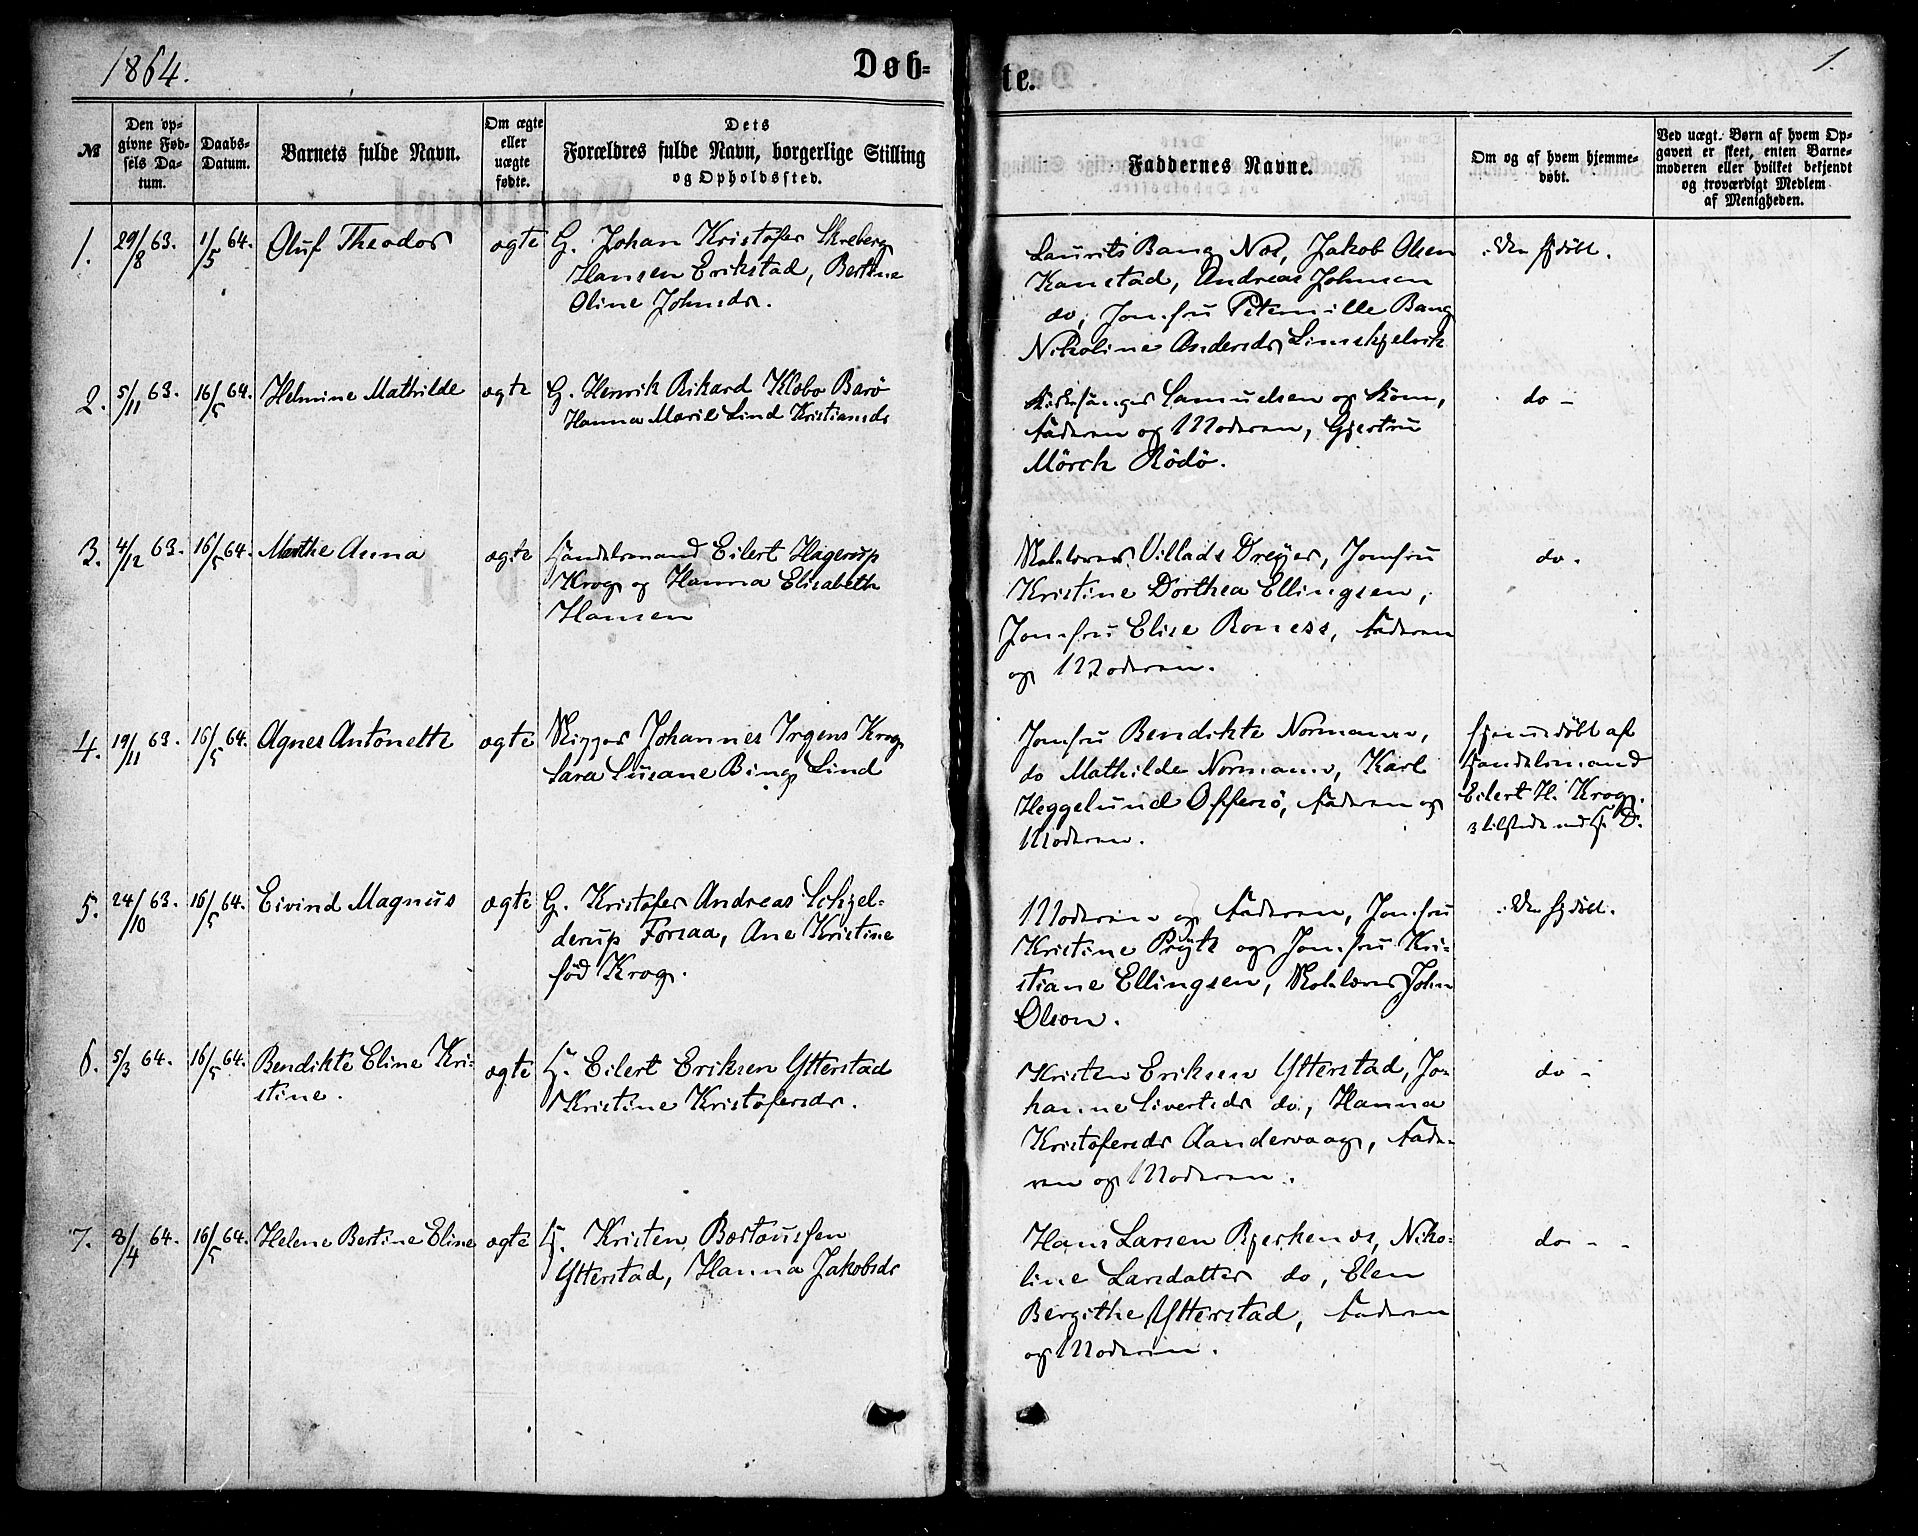 1864.
Døb=
te.
1.
№
Den op=
givne Fød=
sels Da=
tum.
Daabs=
Datum.
Barnets fulde Navn.
Om ægte
eller
uægte
fødte.
Dets
Forældres fulde Navn, borgerlige Stilling
og Opholdssted.
Faddernes Navne.
Om og af hvem hjemme=
døbt.
Ved uægt. Børn af hvem Op=
gaven er skeet, enten Barne=
moderen eller hvilket bekjendt
og troværdigt Medlem
af Menigheden.
1. 29/8 63. 1/5 64. Oluf Theodor ægte G. Johan Kristofer Skreberg
Hansen Erikstad, Bertine
Oline Johnsdr.
Laurits Bang Næs, Jakob Olsen
Kanstad, Andreas Johnsen
do, Jomfru Peternille Bang
Nikoline Andersdr
hjdøbt.
2. 5/11 63. 16/5 64. Helmine Mathilde ægte G. Henrik Rikard Klæbo Barø
Hanna Marie Lind Kristiansdr
Kirkesanger Samuelsen og Kone,
Faderen og Moderen, Gjertru
Mörch Rödö.
do -
3. 4/12 63. 16/5 64. Marthe Anna ægte Handelsmand Eilert Hagerup
Krog og Hanna Elisabeth
Hansen
Skolelærer Villads Dreyer, Jomfru
Kristine Dorthea Ellingsen,
Jomfru Elise Roness, Faderen
og Moderen.
do.
4. 19/11 63. 16/5 64. Agnes Antonette ægte Skipper Johannes Irgens Krog
Sara Susane Bing Lind
Jomfru Bendikte Normann,
do Mathilde Normann, Karl
Heggelund Offersö, Faderen og
Moderen.
hjemmedöbt af
Handelsmand
Eilert H. Krog.
5. 24/10 63. 16/5 64. Eivind Magnus ægte G. Kristofer Andreas Schjel-
derup Forsaa, Ane Kristine
född Krog.
Moderen og Faderen, Jomfru
Kristine Prytz og Jomfru Kri-
stiane Ellingsen, Skolelærer John
Olson.
hjdöbt.
6. 5/3 64. 16/5 64. Bendikte Eline Kri-
stine.
ægte H. Eilert Eriksen Ytterstad
Kristine Kristofersdr.
Kristen Eriksen Ytterstad, Jo-
hanne Sivertsdr do, Hanna
Kristofersdr Aandervaag, Fade-
ren og Moderen.
do -
7. 8/4 64. 16/5 64. Helene Bertine Eline ægte H. Kristen Bastoussen
Ytterstad, Hanna Jakobsdr
Hans Larsen Bjerkenæs, Niko-
line Larsdatter do, Elen
Bergithe Ytterstad, Faderen
og Moderen.
do - -